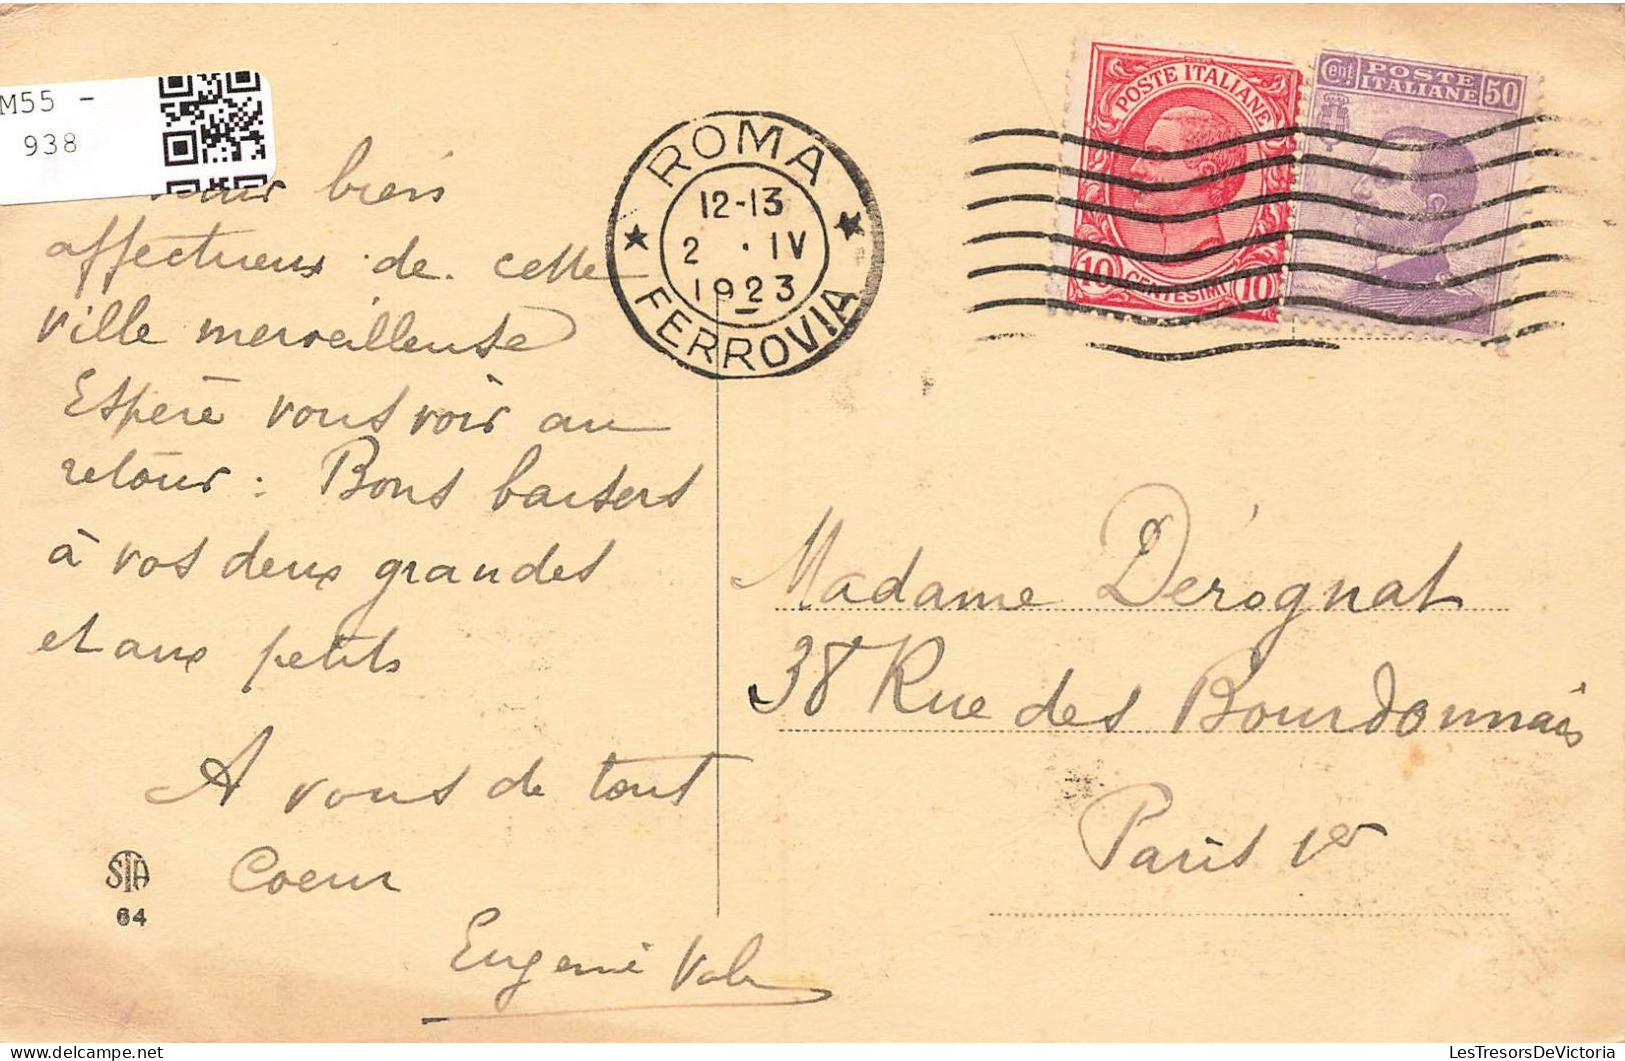 M55 -
938
bien
affectueux de cette
ville merveilleuse
Espère vous voir au
retour : Bons baisers
à vos deux grandes
et aux petits
A vous de tout
Coeur
Eugénie
STA
64
ROMA
12-13
2 . IV
1923
FERROVIA
POSTE ITALIANE
10 CENTESIMI 10
Cent POSTE ITALIANE 50
Madame Dérognat
38 Rue des Bourdonnais
Paris 1er
LesTresorsDeVictoria